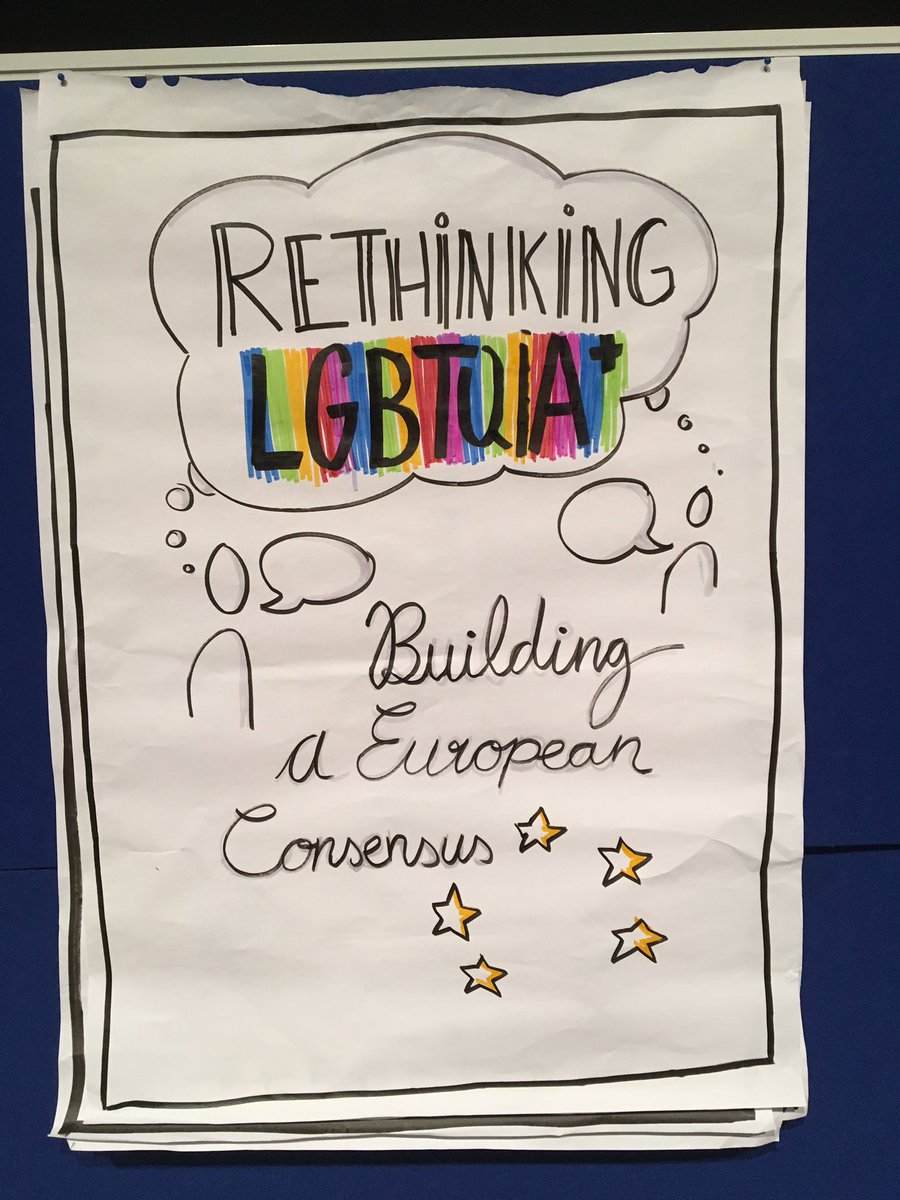 RETHiNKiNG
LGBTQiA+
Building
a European
Consensus